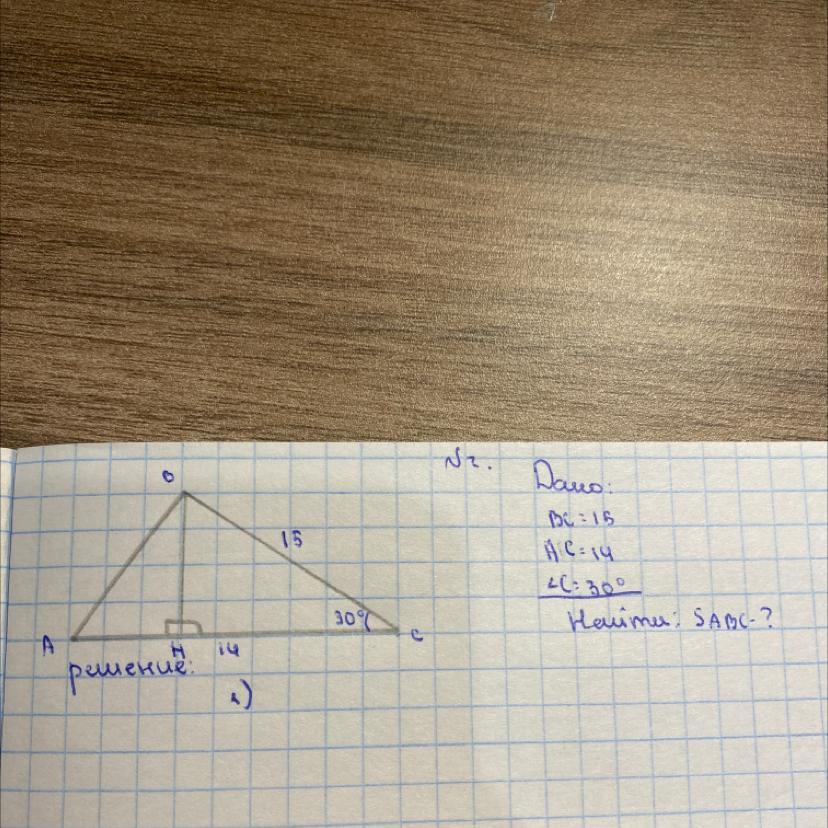 №2.
Дано:
B
BC=15
15
AC=14
∠C=30°
30°
Найти: SABC-?
A
H
14
C
решение:
1)